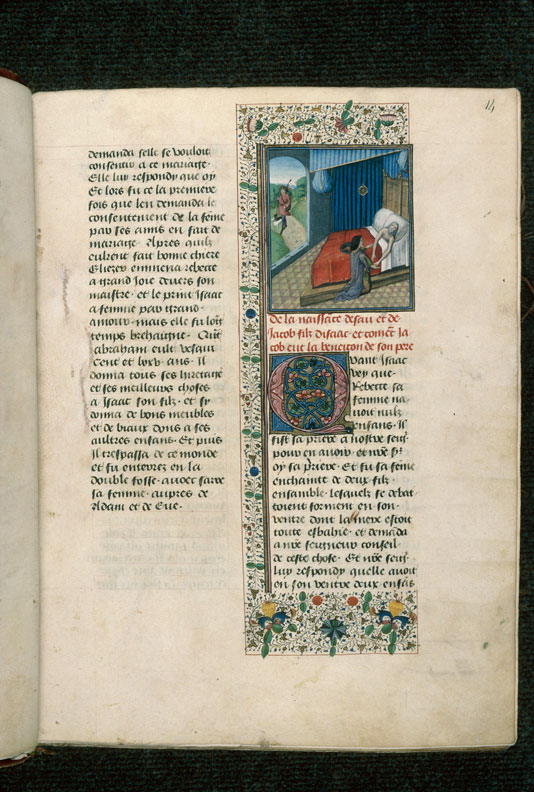 14
demanda selle se vouloit
consentir a ce mariaige.
Elle luy respondy que oy
Et lors fu ce la premiere
fois que len demanda le
consentement de la feme
par ses amis en fait de
mariage. Apres quilz
eulrent fait bonne chiere
Eliezer emmena rebecte
a grand Joie devers son
maistre. et le print isaac
a femme par grand
amour. mais elle fu loīg
temps brehaigne. Quāt
abraham eult vesqui
Cent et lxxv ans. Il
donna tous ses hiretaiges
et ses meilleurs choses
a Isaac son filz. et sy
donna de bons meubles
et de biaux dons a ses
aultres enfans. Et puis
il trespassa de ce monde
et fu enterrez en la
double fosse. avoec sarre
sa femme. aupres de
Adam et de Eue.
De la naissāce desau et de
Jacob filz disaac. et comēt Ja
cob eut la beneiçon de son pere
Quant Isaac
vey que
Rebecte sa
femme na
voit nulz
enfans. Il
fist sa priere a nostre seigʳ
pour en avoir. et nr̄e sʳ
oy sa priere. Et fu sa feme
enchainte de deux filz
ensamble. lesquelz se debat
toient forment en son
ventre dont la mere estoit
toute esbahie. et demāda
a nr̄e seigneur conseil
de ceste chose. Et nr̄e seigʳ
luy respondy quelle avoit
en son ventre deux enfās